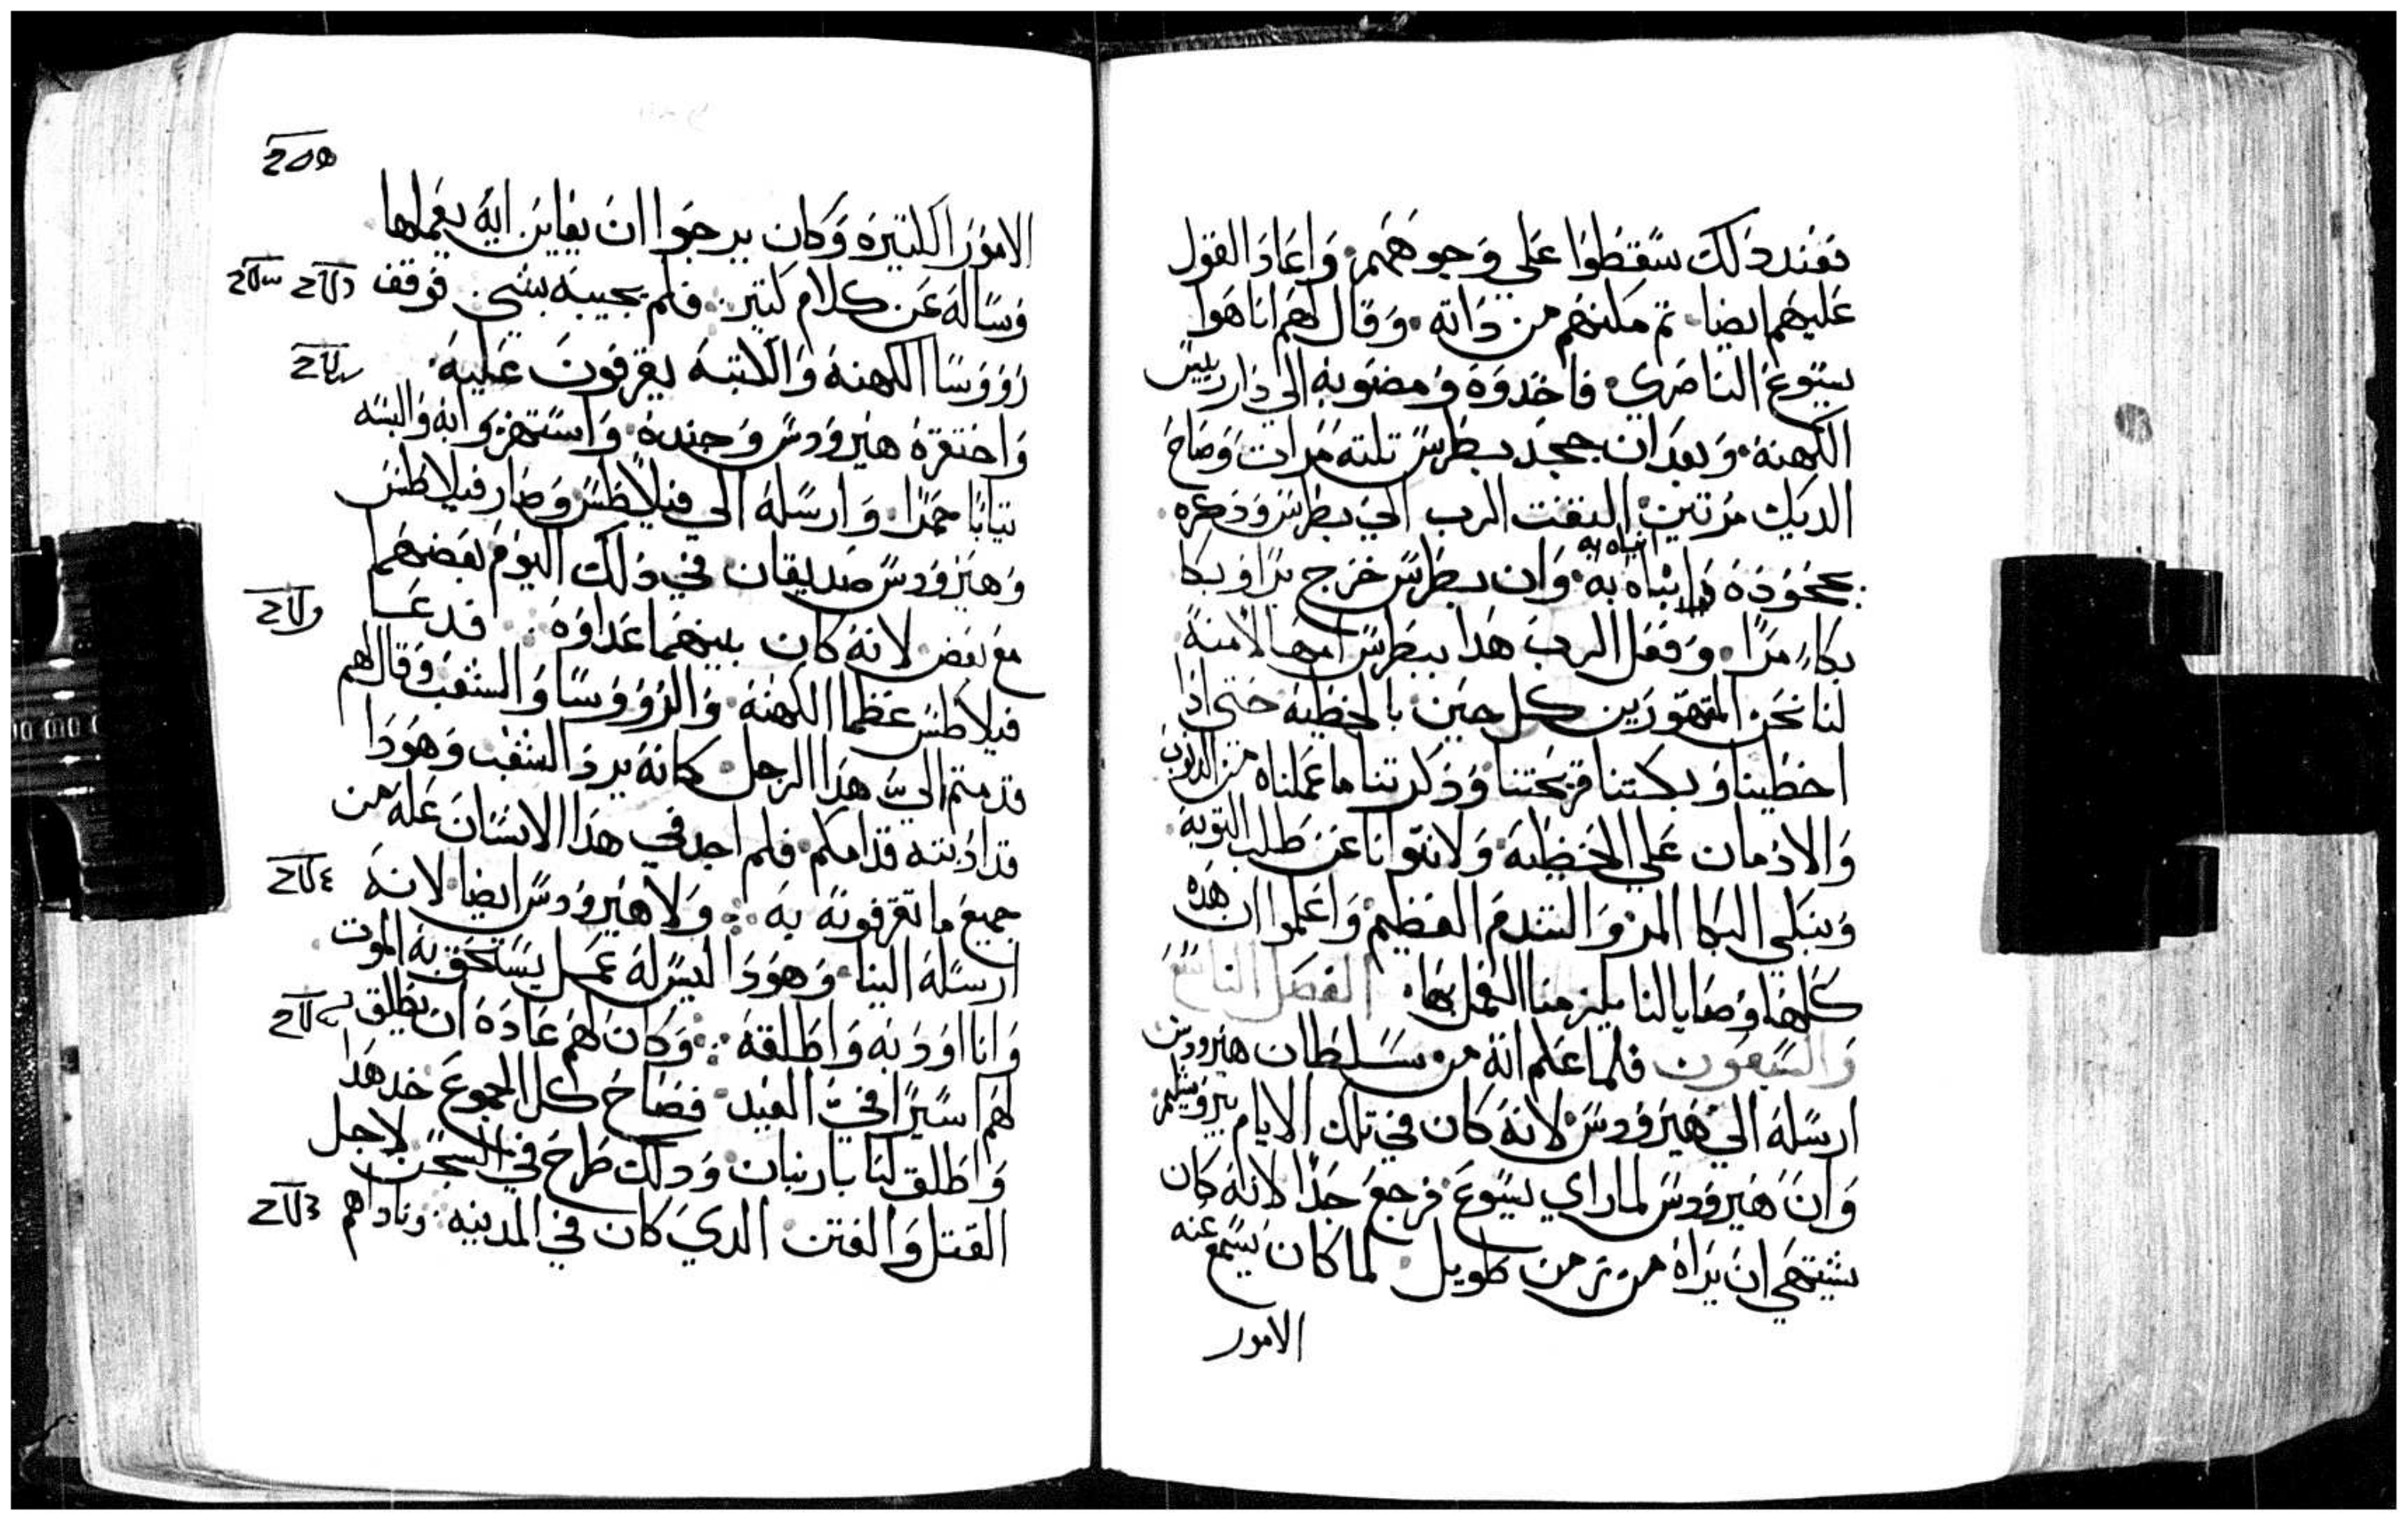 فعند دلك سقطوا على وجوههم. واعاد القول
عليهم ايضا. تم مكنهم من داته. وقال لهم انا هوا
يسوع الناصري. فاخدوه ومضوبه الى دار رييس
الكهنه. وبعد ان جحد بطرس تلته مرات وصاح
الديك مرتين. التفت الرب الي بطرس ودكره.
انباه به
بجحوده به. وان بطرس خرج برا وبكا
بكاء مرا. وفعل الرب هدا ببطرس
لنا نحن المتهورين كل حين بالخطية حتى ادا
اخطينا وبكتنا قريحتنا ودكرتنا ما عملناه من الدنوب
والادمان علي الخطيه ولا نتوانا عن طلب التوبة
ونبكي البكا المر والندم العظيم. واعلموا ان هده
كلها وصايا لنا يلزمنا العمل بها. الفصل التاسع
والسبعون فلما علم انه من سلطان هيرودس
ارسله الي هيرودس. لانه كان في تلك الايام بيروشليم.
وان هيرودس لما راي يسوع فرح جدا لانه كان
يشتهي ان يراه من زمن طويل. لما كان يسمع عنه
الامور
الامور الكتيره وكان يرجوا ان يعاين ايه يعملها
وساله عن كلام كتير. فلم يجيبه بشي. فوقف
رووسا الكهنه والكتبه يقرفون عليه.
واحتقره هيرودس وجنده. واستهزوابه والبسه
تيابا حمرا. وارسله الي فيلاطس وصار فيلاطس
وهيرودس صديقان في دلك اليوم بعضهم
مع بعض لانه كان بينهما عداوه. فدعا
فيلاطس عظما الكهنه والرووسا والشعب وقال لهم
قدمتم الي هدا الرجل كانه يرد الشعب وهودا
قدادنته قدامكم. فلم اجد في هدا الانسان عله من
جميع ما تقرفونه به. ولا هيرودس ايضا لانه
ارسله الينا. وهودا ليس له عمل يستحق به الموت
وانا اودبه واطلقه. وكان لهم عادة ان يطلق
لهم اسيرا في العيد. فصاح كل الجموع خد هدا
واطلق لنا باربان. ودلك طرح في السجن لاجل
القتل والفتن الدي كان في المدينه. وناداهم